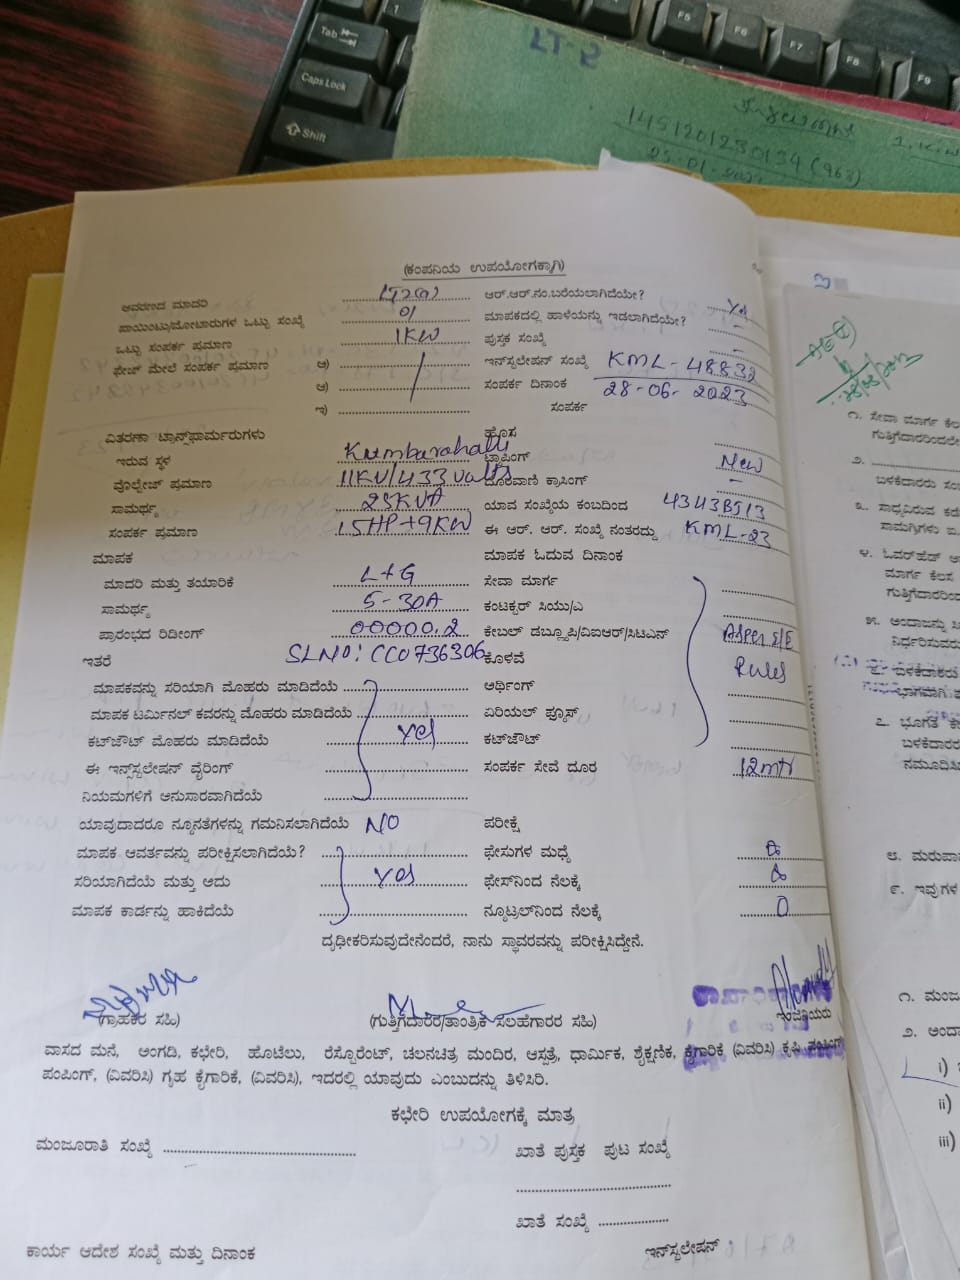 Tab
Caps Lock
Shift
1
F5
F6
F7
F8
F9
LT-5
1451201230134 (963)
25-01-2022
(ಕಂಪನಿಯ ಉಪಯೋಗಕ್ಕಾಗಿ)
ಆವರಣದ ಮಾದರಿ ಆರ್.ಆರ್.ನಂ.ಬರೆಯಲಾಗಿದೆಯೇ? Yes
ಪಾಯಿಂಟು/ಮೋಟಾರುಗಳ ಒಟ್ಟು ಸಂಖ್ಯೆ 01 ಮಾಪಕದಲ್ಲಿ ಹಾಳೆಯನ್ನು ಇಡಲಾಗಿದೆಯೇ? –
ಒಟ್ಟು ಸಂಪರ್ಕ ಪ್ರಮಾಣ 1KW ಪುಸ್ತಕ ಸಂಖ್ಯೆ –
ಫೇಜ್ ಮೇಲೆ ಸಂಪರ್ಕ ಪ್ರಮಾಣ ಅ) ಇನ್‌ಸ್ಟಲೇಷನ್ ಸಂಖ್ಯೆ KML-48832
ಆ) ಸಂಪರ್ಕ ದಿನಾಂಕ 28-06-2023
ಇ) ಸಂಪರ್ಕ
ವಿತರಣಾ ಟ್ರಾನ್ಸ್‌ಫಾರ್ಮರುಗಳು ಹೊಸ
ಇರುವ ಸ್ಥಳ Kumbarahally ಟ್ಯಾಪಿಂಗ್ New
ವೊಲ್ಟೇಜ್ ಪ್ರಮಾಣ 11KV/433 Volts ದೂರವಾಣಿ ಕ್ರಾಸಿಂಗ್ –
ಸಾಮರ್ಥ್ಯ 25KVA ಯಾವ ಸಂಖ್ಯೆಯ ಕಂಬದಿಂದ
ಸಂಪರ್ಕ ಪ್ರಮಾಣ 15HP+9KW ಈ ಆರ್. ಆರ್. ಸಂಖ್ಯೆ ನಂತರದ್ದು KML-23
ಮಾಪಕ ಮಾಪಕ ಓದುವ ದಿನಾಂಕ
ಮಾದರಿ ಮತ್ತು ತಯಾರಿಕೆ L+G ಸೇವಾ ಮಾರ್ಗ
ಸಾಮರ್ಥ್ಯ 5-30A ಕಂಟಕ್ಟರ್ ಸಿಯು/ಎ
ಪ್ರಾರಂಭದ ರಿಡೀಂಗ್ 00000.2 ಕೇಬಲ್ ಡಬ್ಲ್ಯೂಪಿ/ವಿಐಆರ್/ಸಿಟಿಎಸ್ As per I/E
ಇತರೆ SLNO: CC0736306 ಕೊಳವೆ Rules
ಮಾಪಕವನ್ನು ಸರಿಯಾಗಿ ಮೊಹರು ಮಾಡಿದೆಯೆ ಅರ್ಥಿಂಗ್
ಮಾಪಕ ಟರ್ಮಿನಲ್ ಕವರನ್ನು ಮೊಹರು ಮಾಡಿದೆಯೆ ಏರಿಯಲ್ ಫ್ಯೂಸ್
ಕಟ್‌ಔಟ್ ಮೊಹರು ಮಾಡಿದೆಯೆ Yes ಕಟ್‌ಔಟ್
ಈ ಇನ್ಸ್‌ಸ್ಟಲೇಷನ್ ವೈರಿಂಗ್ ಸಂಪರ್ಕ ಸೇವೆ ದೂರ 12mtr
ನಿಯಮಗಳಿಗೆ ಅನುಸಾರವಾಗಿದೆಯೆ
ಯಾವುದಾದರೂ ನ್ಯೂನತೆಗಳನ್ನು ಗಮನಿಸಲಾಗಿದೆಯೆ NO ಪರೀಕ್ಷೆ
ಮಾಪಕ ಆವರ್ತವನ್ನು ಪರೀಕ್ಷಿಸಲಾಗಿದೆಯೆ? ಫೇಸುಗಳ ಮಧ್ಯೆ
ಸರಿಯಾಗಿದೆಯೆ ಮತ್ತು ಅದು Yes ಫೇಸ್‌ನಿಂದ ನೆಲಕ್ಕೆ
ಮಾಪಕ ಕಾರ್ಡನ್ನು ಹಾಕಿದೆಯೆ ನ್ಯೂಟ್ರಲ್‌ನಿಂದ ನೆಲಕ್ಕೆ 0
ದೃಢೀಕರಿಸುವುದೇನೆಂದರೆ, ನಾನು ಸ್ಥಾವರವನ್ನು ಪರೀಕ್ಷಿಸಿದ್ದೇನೆ.
(ಗ್ರಾಹಕರ ಸಹಿ) (ಗುತ್ತಿಗೆದಾರರ/ತಾಂತ್ರಿಕ ಸಲಹೆಗಾರರ ಸಹಿ) ಇಂಜಿನಿಯರು
ವಾಸದ ಮನೆ, ಅಂಗಡಿ, ಕಛೇರಿ, ಹೊಟೆಲು, ರೆಸ್ಟೊರೆಂಟ್, ಚಲನಚಿತ್ರ ಮಂದಿರ, ಆಸ್ಪತ್ರೆ, ಧಾರ್ಮಿಕ, ಶೈಕ್ಷಣಿಕ, ಕೈಗಾರಿಕೆ (ವಿವರಿಸಿ) ಕೃಷಿ ಪಂಪಿಂಗ್
ಪಂಪಿಂಗ್, (ವಿವರಿಸಿ) ಗೃಹ ಕೈಗಾರಿಕೆ, (ವಿವರಿಸಿ), ಇದರಲ್ಲಿ ಯಾವುದು ಎಂಬುದನ್ನು ತಿಳಿಸಿರಿ.
ಕಛೇರಿ ಉಪಯೋಗಕ್ಕೆ ಮಾತ್ರ
ಮಂಜೂರಾತಿ ಸಂಖ್ಯೆ ಖಾತೆ ಪುಸ್ತಕ ಪುಟ ಸಂಖ್ಯೆ
ಖಾತೆ ಸಂಖ್ಯೆ
ಕಾರ್ಯ ಆದೇಶ ಸಂಖ್ಯೆ ಮತ್ತು ದಿನಾಂಕ ಇನ್‌ಸ್ಟಲೇಷನ್
೧. ಸೇವಾ ಮಾರ್ಗ
ಗುತ್ತಿಗೆದಾರರಿಂದಲೇ
೨.
೪. ಓವರ್‌ಹೆಡ್
ಮಾರ್ಗ ಕೆಲಸ
ಗುತ್ತಿಗೆದಾರರಿಂದ
೫. ಅಂದಾಜನ್ನು
೭. ಭೂಗತ
ಬಳಕೆದಾರರ
೮.
೯. ಇವುಗಳ
೧. ಮಂಜೂ
೨. ಅಂದಾ
i)
ii)
iii)